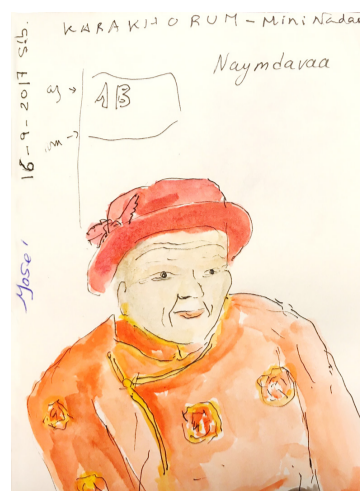 KARAKHORUM - Mini Nadaa
Naymdavaa
1B
16-9-2017 Sib.
José